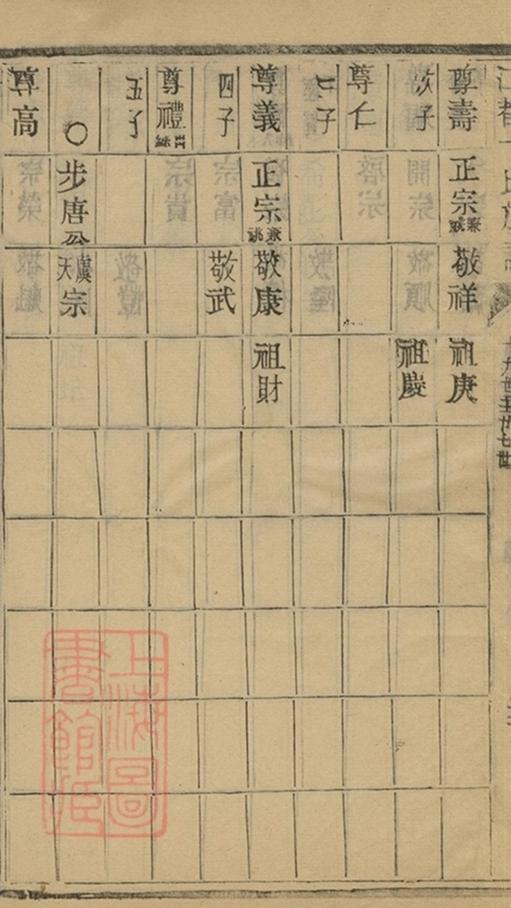 十九世至廿七世
尊壽 正宗兼祧 敬祥 祖庚
次子 祖慶
尊仁
三子
尊義 正宗兼祧 敬康 祖財
四子 敬武
尊禮
五子
〇 步唐公 虞天宗
尊高
上海圖書館藏